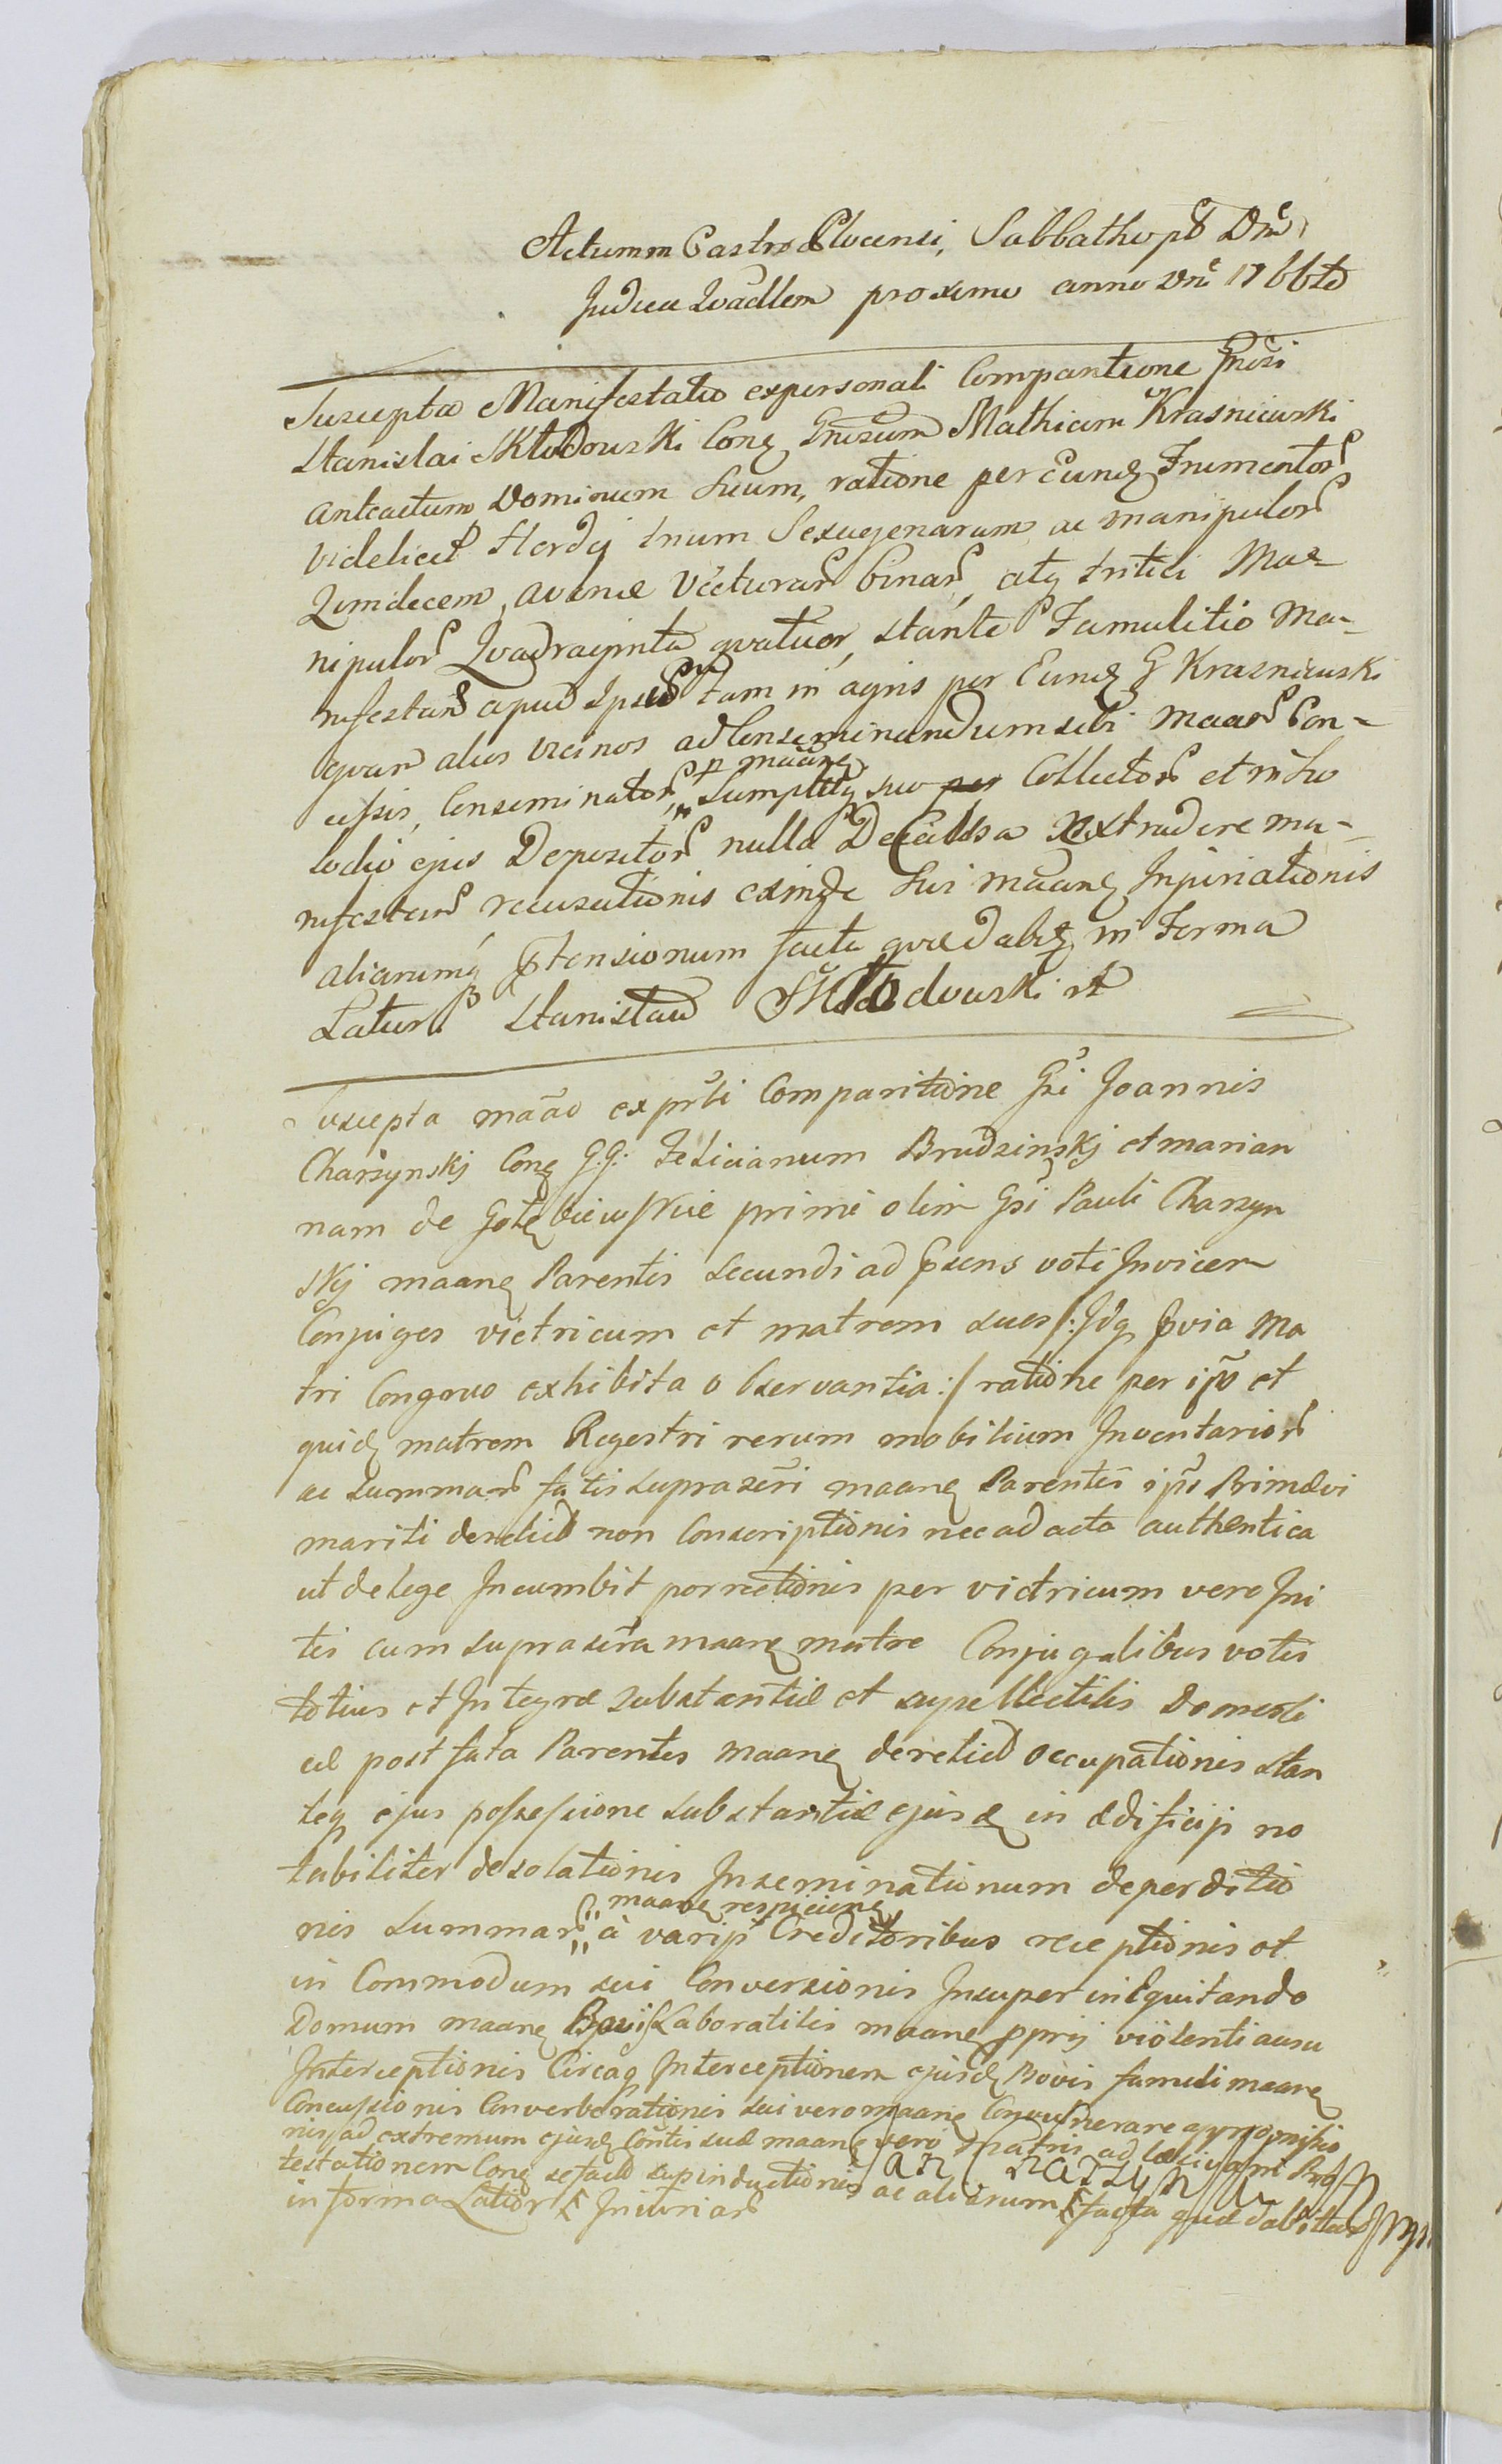 Actum in Castro Plocensi, Sabbatho pt Dnc̃
Judica Qvadlem proximo anno Dni 1766to
Suscepta Manifestatio ex personali Compartione Gnosi
Stanislai Skłodowski Conq Gnosum Mathiam Krasniewski
anteactum Dominum Suum, ratione per Eundq Frumentor
videlicet Hordei trium Sexagenarum ac manipulor
Qvindecem, avenæ Vecturar binar, atq tritici Ma-
nipulor Qvadraginta qvatuor, stante Famulitio Ma-
nifestan apud Ipsum tam in agris per Eundq G Krasniewski
qvam alios vicinos ad Conseminandum sibi Maan Con-
cessis, Conseminator, p maanq Sumptuq suo Collector et in
lodio ejus Depositor nulla De Causa Extradere ma-
nifestan recusationis exinde Sui maanq Injuriationis
aliarumq ptensionum facta qvæ dabitq in Forma
Latiori Stanisław Skłodowski
Suscepta maão ex prli Comparitione Gsi Joannis
Charzynskj Conq G.G: Felicianum Brudzinskj et marian
nam de Gołębiewskie primi olim Gsi Pauli Charzyn
skj maanq Parentis secundi ad psens voti Invicem
Conjuges victricum et matrem suos /: Idq pvia Ma
tri Congruo exhibita observantia :/ ratione per ips et
quidq matrem Regestri rerum mobilium Inventarior
ac summar fatis suprascri maanq Parentis ips Primævi
mariti derelict non Conscriptionis nec ad acta authentica
ut de lege Incumbit porrectionis per victricum vero Ini
tis cum suprascra maanq matre Conjugalibus votis
totius et Integræ substantiæ et supellectilis Domesti
cæ post fata Parentis maanq derelict occupationis stan
teq ejus possessione substantiæ ejusdq in ædificijs no
tabiliter desolationis Inseminationum deperditio
nis summar maanq respicienq à varijs Creditoribus receptionis et
in Commodum sui Conversionis Insuper in Equitando
Domum maanq Bovis Laboratilis maanq pprij violenti ausu
Interceptionis Circaq Interceptionem ejusdq Bovis famuli maanq
Concussionis Converberationis sui vero maanq Convulnerare
nis ad extremum ejusdq suæ maanq vero matris ad
testationem Conq se facto superinductionis ac aliarum facta quæ dabitur
in forma Latior Iniuriar